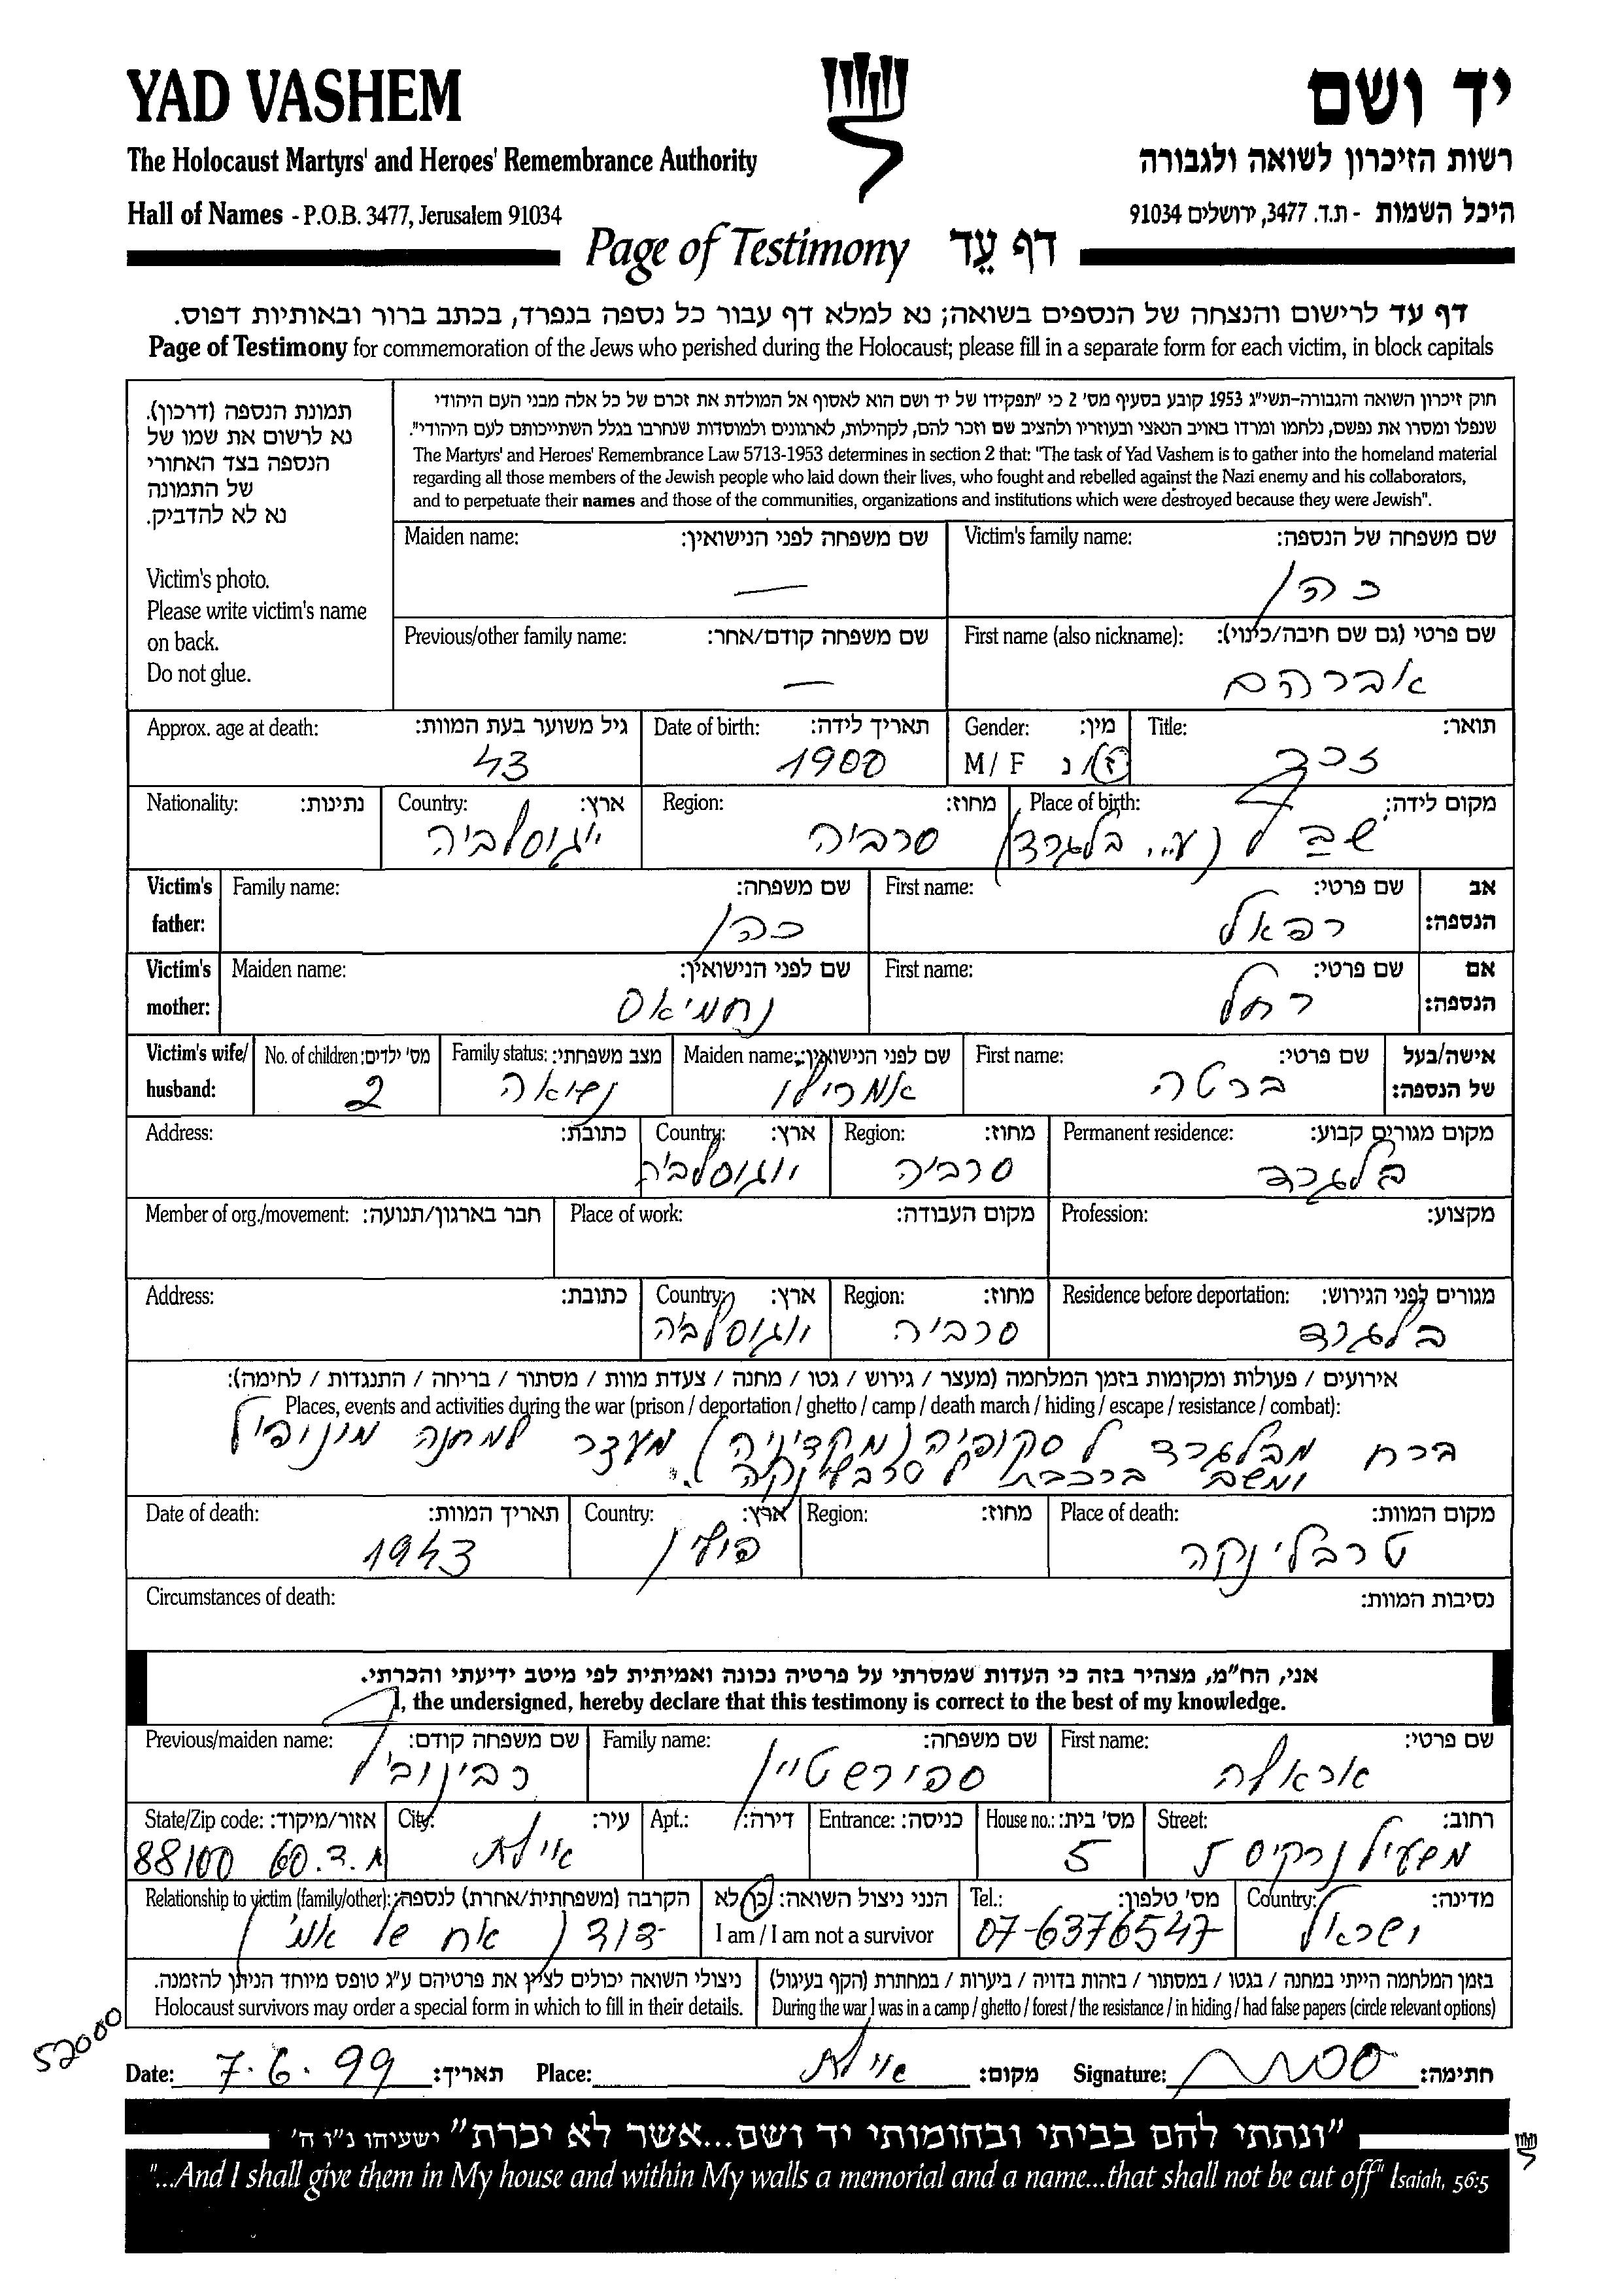 YAD VASHEM
יד ושם
The Holocaust Martyrs' and Heroes' Remembrance Authority
רשות הזיכרון לשואה ולגבורה
Hall of Names - P.O.B. 3477, Jerusalem 91034
היכל השמות - ת.ד. 3477, ירושלים 91034
Page of Testimony דף עֵד
דף עד לרישום והנצחה של הנספים בשואה; נא למלא דף עבור כל נספה בנפרד, בכתב ברור ובאותיות דפוס.
Page of Testimony for commemoration of the Jews who perished during the Holocaust; please fill in a separate form for each victim, in block capitals
תמונת הנספה (דרכון).
נא לרשום את שמו של
הנספה בצד האחורי
של התמונה
נא לא להדביק.
Victim's photo.
Please write victim's name
on back.
Do not glue.
חוק זיכרון השואה והגבורה-תשי"ג 1953 קובע בסעיף מס' 2 כי "תפקידו של יד ושם הוא לאסוף אל המולדת את זכרם של כל אלה מבני העם היהודי
שנפלו ומסרו את נפשם, נלחמו ומרדו באויב הנאצי ובעוזריו ולהציב שם וזכר להם, לקהילות, לארגונים ולמוסדות שנחרבו בגלל השתייכותם לעם היהודי".
The Martyrs' and Heroes' Remembrance Law 5713-1953 determines in section 2 that: "The task of Yad Vashem is to gather into the homeland material
regarding all those members of the Jewish people who laid down their lives, who fought and rebelled against the Nazi enemy and his collaborators,
and to perpetuate their names and those of the communities, organizations and institutions which were destroyed because they were Jewish".
Victim's family name: שם משפחה של הנספה:
כהן
Maiden name: שם משפחה לפני הנישואין:
—
First name (also nickname): שם פרטי (גם שם חיבה/כינוי):
אברהם
Previous/other family name: שם משפחה קודם/אחר:
—
Title: תואר:
Gender: מין:
M / F ז/נ
Date of birth: תאריך לידה:
1900
Approx. age at death: גיל משוער בעת המוות:
43
זכר
Place of birth: מקום לידה:
(ע"י בלגרד)
Region: מחוז:
סרביה
Country: ארץ:
יוגוסלביה
Nationality: נתינות:
Victim's father: אב הנספה:
First name: שם פרטי:
רפאל
Family name: שם משפחה:
כהן
Victim's mother: אם הנספה:
First name: שם פרטי:
רחל
Maiden name: שם לפני הנישואין:
נחמיאס
Victim's wife/ husband: אישה/בעל של הנספה:
First name: שם פרטי:
ברטה
Maiden name: שם לפני הנישואין:
אמרילו
Family status: מצב משפחתי:
נשואה
No. of children: מס' ילדים:
2
Permanent residence: מקום מגורים קבוע:
בלגרד
Region: מחוז:
סרביה
Country: ארץ:
יוגוסלביה
Address: כתובת:
Profession: מקצוע:
Place of work: מקום העבודה:
Member of org./movement: חבר בארגון/תנועה:
Residence before deportation: מגורים לפני הגירוש:
בלגרד
Region: מחוז:
סרביה
Country: ארץ:
יוגוסלביה
Address: כתובת:
אירועים / פעולות ומקומות בזמן המלחמה (מעצר / גירוש / גטו / מחנה / צעדת מוות / מסתור / בריחה / התנגדות / לחימה):
Places, events and activities during the war (prison / deportation / ghetto / camp / death march / hiding / escape / resistance / combat):
ברח מבלגרד לסקופיה (מקדוניה). מעצר למחנה מונופול
ומשם ברכבת לטרבלינקה
Place of death: מקום המוות:
טרבלינקה
Region: מחוז:
Country: ארץ:
פולין
Date of death: תאריך המוות:
1943
Circumstances of death: נסיבות המוות:
אני, הח"מ, מצהיר בזה כי העדות שמסרתי על פרטיה נכונה ואמיתית לפי מיטב ידיעתי והכרתי.
I, the undersigned, hereby declare that this testimony is correct to the best of my knowledge.
First name: שם פרטי:
אראלה
Family name: שם משפחה:
ספורשטיין
Previous/maiden name: שם משפחה קודם:
רבינוביץ
Street: רחוב:
משעול נרקיס 5
House no.: מס' בית:
5
Entrance: כניסה:
Apt.: דירה:
City: עיר:
אילת
State/Zip code: אזור/מיקוד:
88100 60
Country: מדינה:
ישראל
Tel.: מס' טלפון:
07-6376547
הנני ניצול השואה: כן לא
I am / I am not a survivor
Relationship to victim (family/other): הקרבה (משפחתית/אחרת) לנספה:
דוד (אח של אמי)
בזמן המלחמה הייתי במחנה / בגטו / במסתור / בזהות בדויה / ביערות / במחתרת (הקף בעיגול)
During the war I was in a camp / ghetto / forest / the resistance / in hiding / had false papers (circle relevant options)
ניצולי השואה יכולים לציץ את פרטיהם ע"ג טופס מיוחד הניתן להזמנה.
Holocaust survivors may order a special form in which to fill in their details.
52000
Date: 7.6.99 תאריך: Place: אילת מקום: Signature: חתימה:
"ונתתי להם בביתי ובחומותי יד ושם...אשר לא יכרת" ישעיהו נ"ו ה'
"...And I shall give them in My house and within My walls a memorial and a name...that shall not be cut off" Isaiah, 56:5